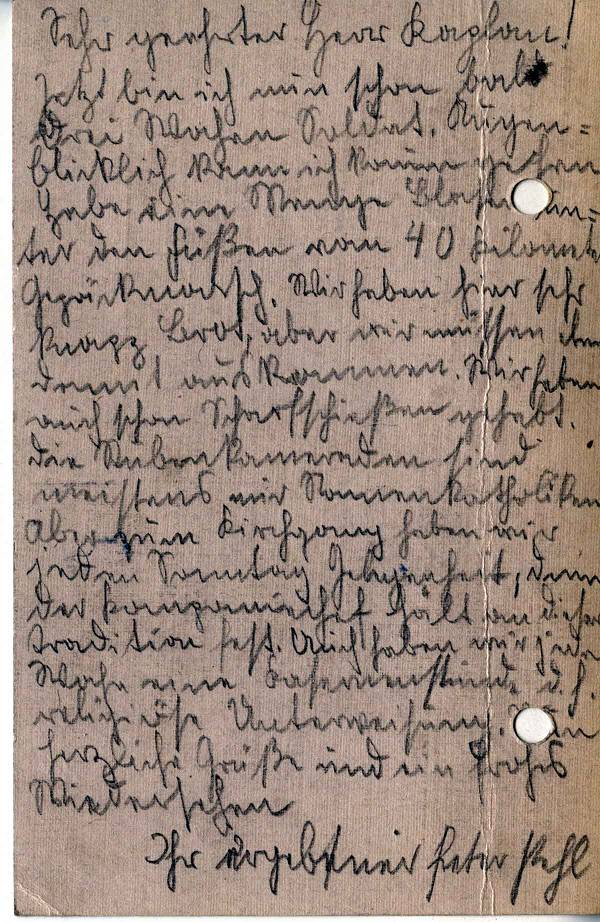 Sehr geehrter Herr Kaplan!
Jetzt bin ich nun schon bald
drei Wochen Soldat. Augen=
blicklich kann ich kaum gehen
habe eine Menge Blasen un=
ter den Füßen vom 40 Kilomet
Gepäckmarsch. Wir haben hier sehr
knapp Brot, aber wir müssen eben
damit auskommen. Wir haben
auch schon Scharfschießen gehabt.
Die Stubenkameraden sind
meistens nur Namenkatholiken
Aber zum Kirchgang haben wir
jeden Sonntag Gelegenheit, denn
der Kompaniechef hält an dieser
Tradition fest. Auch haben wir jede
Woche eine Kasernenstunde d.h.
religiöse Unterweisung. Nun
herzliche Grüße und ein frohes
Wiedersehen
Ihr ergebener Peter